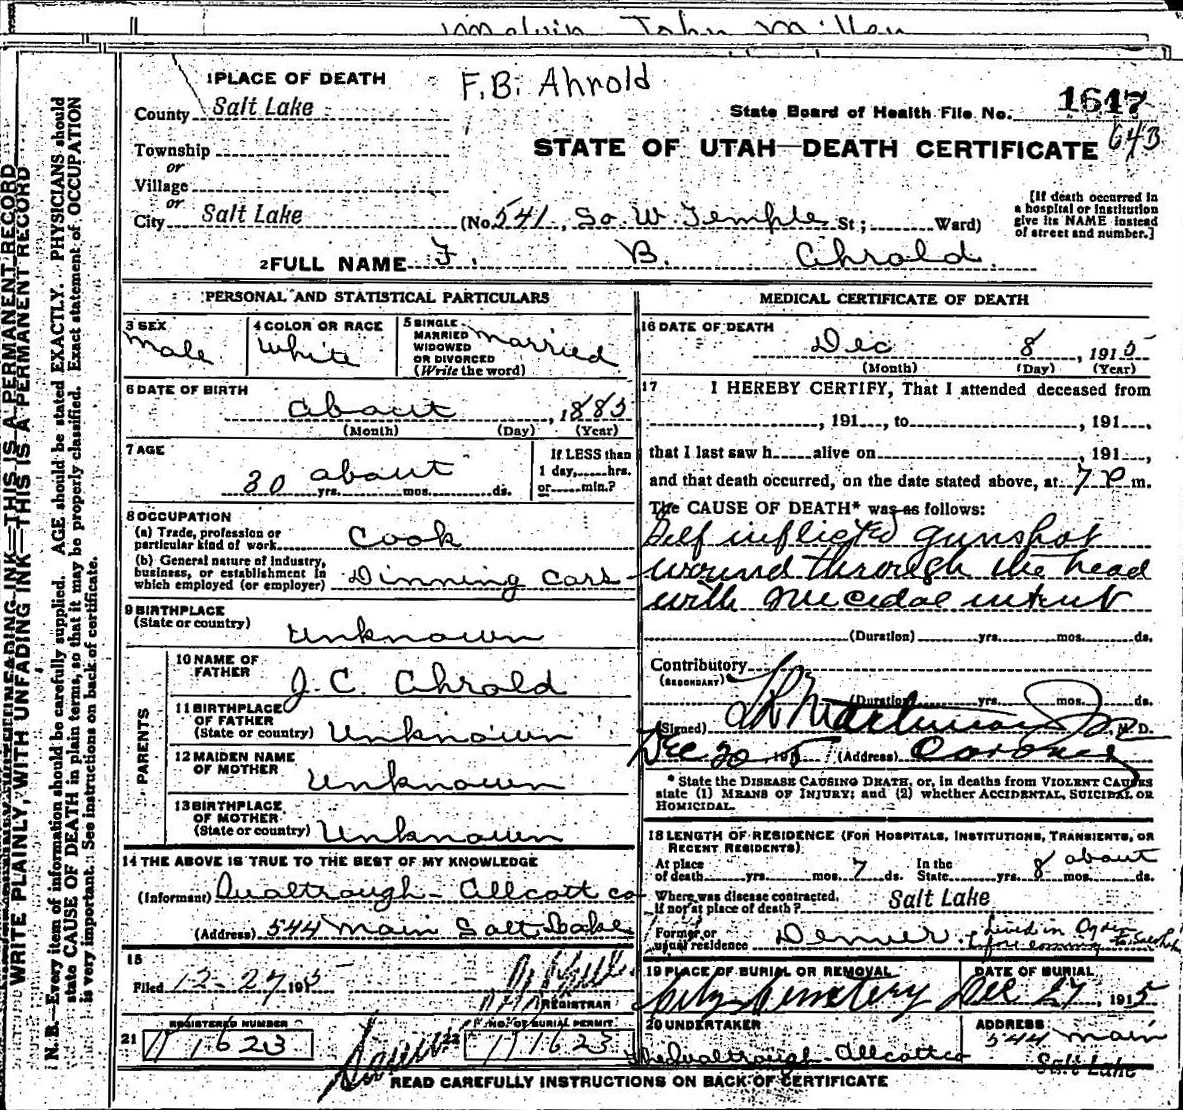 Melvin John Miller
WRITE PLAINLY, WITH UNFADING INK—THIS IS A PERMANENT RECORD
N. B.—Every item of information should be carefully supplied. AGE should be stated EXACTLY. PHYSICIANS should
state CAUSE OF DEATH in plain terms, so that it may be properly classified. Exact statement of OCCUPATION
is very important. See instructions on back of certificate.
1 PLACE OF DEATH
F. B. Ahrold
County Salt Lake
State Board of Health File No. 1617
Township
643
or
STATE OF UTAH—DEATH CERTIFICATE
Village
or
City Salt Lake (No. 541, So. W. Temple St; Ward)
[If death occurred in
a hospital or institution
give its NAME instead
of street and number.]
2 FULL NAME F. B. Ahrold.
PERSONAL AND STATISTICAL PARTICULARS
3 SEX
Male
4 COLOR OR RACE
White
5 SINGLE
MARRIED
WIDOWED
OR DIVORCED
(Write the word)
Married
6 DATE OF BIRTH
about, 1885
(Month) (Day) (Year)
7 AGE
about
30 yrs. mos. ds.
If LESS than
1 day, hrs.
or min.?
8 OCCUPATION
(a) Trade, profession or
particular kind of work Cook
(b) General nature of industry,
business, or establishment in
which employed (or employer) Dinning Cars
9 BIRTHPLACE
(State or country) Unknown
PARENTS
10 NAME OF
FATHER J. C. Ahrold
11 BIRTHPLACE
OF FATHER
(State or country) Unknown
12 MAIDEN NAME
OF MOTHER Unknown
13 BIRTHPLACE
OF MOTHER
(State or country) Unknown
14 THE ABOVE IS TRUE TO THE BEST OF MY KNOWLEDGE
(Informant) Qualtrough-Allcott co
(Address) 544 Main Salt Lake
15
Filed 12-27 1915
REGISTRAR
21 REGISTERED NUMBER
1623
22 NO. OF BURIAL PERMIT
1623
MEDICAL CERTIFICATE OF DEATH
16 DATE OF DEATH
Dec 8, 1915
(Month) (Day) (Year)
17 I HEREBY CERTIFY, That I attended deceased from
, 191 , to , 191 ,
that I last saw h alive on , 191 ,
and that death occurred, on the date stated above, at 7 P m.
The CAUSE OF DEATH* was as follows:
Self inflicted gunshot
wound through the head
with suicidal intent
(Duration) yrs. mos. ds.
Contributory
(SECONDARY)
(Duration) yrs. mos. ds.
(Signed) M. D.
Dec 20 1915 (Address) Coroner
* State the DISEASE CAUSING DEATH, or, in deaths from VIOLENT CAUSES
state (1) MEANS OF INJURY; and (2) whether ACCIDENTAL, SUICIDAL OR
HOMICIDAL.
18 LENGTH OF RESIDENCE (FOR HOSPITALS, INSTITUTIONS, TRANSIENTS, OR
RECENT RESIDENTS)
At place
of death yrs. mos. 7 ds.
In the
State yrs. 8 mos. ds.
about
Where was disease contracted,
if not at place of death? Salt Lake
Former or
usual residence Denver. Lived in Ogden
19 PLACE OF BURIAL OR REMOVAL
City Cemetery
DATE OF BURIAL
Dec 27, 1915
20 UNDERTAKER
The Qualtrough-Allcott co
ADDRESS
544 Main
Salt Lake
READ CAREFULLY INSTRUCTIONS ON BACK OF CERTIFICATE